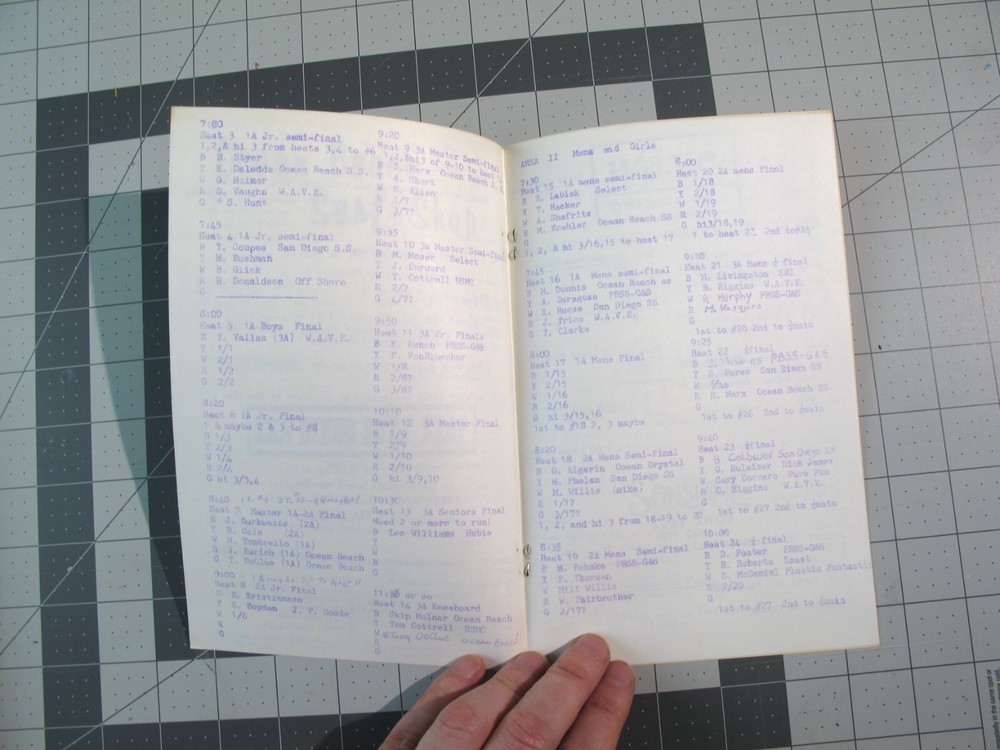 7:00
Heat 3 1A Jr. semi-final
1,2,& hi 3 from heats 3,4 to #6
B B. Styer
Y E. Deledde Ocean Beach S.S.
W G. Holmer
R D. Vaughn W.A.V.E.
G * S. Hunt
7:45
Heat 4 1A Jr. semi-final
B T. Coupee San Diego S.S.
Y M. Bushman
W B. Glick
R R. Donaldson Off Shore
G
8:00
Heat 5 1A Boys Final
B T. Vallas (3A) W.A.V.E.
Y 1/1
W 2/1
R 1/2
G 2/2
8:20
Heat 6 1A Jr. Final
1 & maybe 2 & 3 to #8
B 1/3
Y 2/3
W 1/4
R 2/4
G hi 3/3,4
8:40
Heat 7 Master 1A-2A Final
B J. Gurkweitz (2A)
Y B. Cole (2A)
W N. Tombrello (1A)
R J. Zurich (1A) Ocean Beach
G T. DeGlue (1A) Ocean Beach
9:00
Heat 8 2A Jr. Final
B E. Kristiansen
Y S. Bogdan J. F. Goode
W 1/6
R
G
9:20
Heat 9 3A Master Semi-final
1,2,&hi3 of 9-10 to heat 12
B S. Marx Ocean Beach S.S
Y A. Short
W H. Allen
R 1/7
G 3/7?
9:35
Heat 10 3A Master Semi-final
B M. Moser Select
Y J. Durward
W T. Cottrell USMC
R 2/7
G 4/7?
9:50
Heat 11 3A Jr. Finals
B K. Kunch PBSS-G&S
Y P. VonBluecher
W 1/8
R 2/8?
G 3/8?
10:10
Heat 12 3A Master Final
B 1/9
Y 2/9
W 1/10
R 2/10
G hi 3/9,10
10:30
Heat 13 3A Seniors Final
Need 2 or more to run!
B Leo Williams Hobie
Y
W
R
G
11:10 or so
Heat 14 3A Kneeboard
B Skip Molnar Ocean Beach
Y Tom Cottrell USMC
W Tony DeGlue Ocean Beach
R
G
AREA II Mens and Girls
7:30
Heat 15 1A mens semi-final
B R. Labiak Select
Y T. Hacker
W A. Shafritz
R M. Koehler Ocean Beach SS
G
1, 2, & hi 3/16,15 to heat 17
7:45
Heat 16 1A Mens semi-final
B M. Dennis Ocean Beach SS
Y A. Saragosa PBSS-G&S
W K. Roose San Diego SS
R J. Trico W.A.V.E.
G T. Clarke
8:00
Heat 17 1A Mens Final
B 1/15
Y 2/15
W 1/16
R 2/16
G hi 3/15,16
1st to #18 2, 3 maybe
8:20
Heat 18 2A Mens Semi-final
B G. Algarin Ocean Crystal
Y M. Phelan San Diego SS
W M. Willis (mike)
R 1/17
G 3/17?
1, 2, and hi 3 from 18-19 to 20
8:35
Heat 19 2A Mens Semi-final
B M. Rebuke PBSS-G&S
Y P. Thoreen
W Milt Willis
R W. Fairbrother
G 2/17?
8:00
Heat 20 2A mens Final
B 1/18
Y 2/18
W 1/19
R 2/19
G hi3/18,19
1 to heat 22 2nd to#21
9:10
Heat 21 3A Mens ¼ final
B M. Livingston SSI
Y B. Higgins W.A.V.E.
W R. Murphy PBSS-G&S
R M. Marquez
G
1st to #26 2nd to ½main
9:25
Heat 22 ¼final
B PBSS-G&S
Y S. Perez San Diego SS
W 1/20
R H. Marx Ocean Beach SS
G
1st to #26 2nd to ½main
9:40
Heat 23 ¼final
B B Goldway San Diego SS
Y G. Hulsizer Rick James
W Gary Ceccaro Pure Fun
R G. Higgins W.A.V.E.
G
1st to #27 2nd to ½main
10:00
Heat 24 ¼ final
B D. Foster PBSS-G&S
Y B. Roberts Koast
W D. McDaniel Plastic Fantastic
R 2/20
G
1st to #27 2nd to ½main